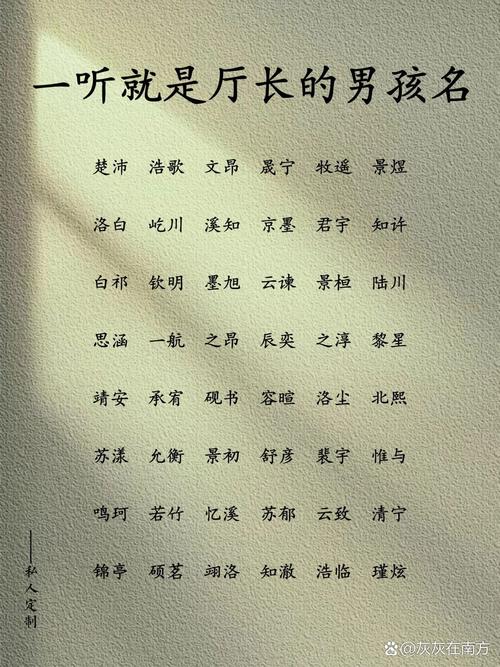 一听就是厅长的男孩名
楚沛 浩歌 文昂 晟宁 牧遥 景煜
洛白 屹川 溪知 京墨 君宇 知许
白祁 钦明 墨旭 云谏 景桓 陆川
思涵 一航 之昂 辰奕 之淳 黎星
靖安 承宥 砚书 容暄 洛尘 北熙
苏漾 允衡 景初 舒彦 裴宇 惟与
鸣珂 若竹 忆溪 苏郁 云致 清宁
锦亭 硕茗 翊洛 知澈 浩临 瑾炫
——私人定制
@灰灰在南方